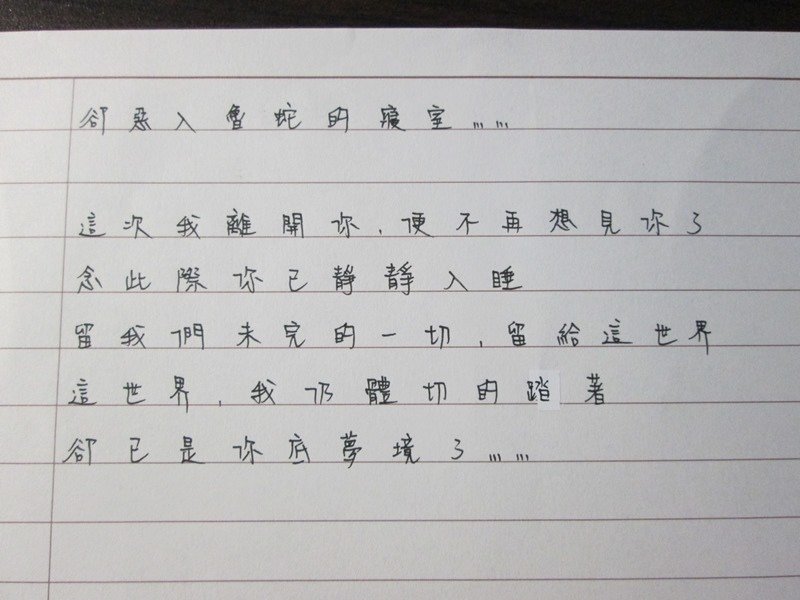 卻惡入魯蛇的寢室……
這次我離開你,便不再想見你了
念此際你已靜靜入睡
留我們未完的一切,留給這世界
這世界,我仍體切的踏著
卻已是你底夢境了……